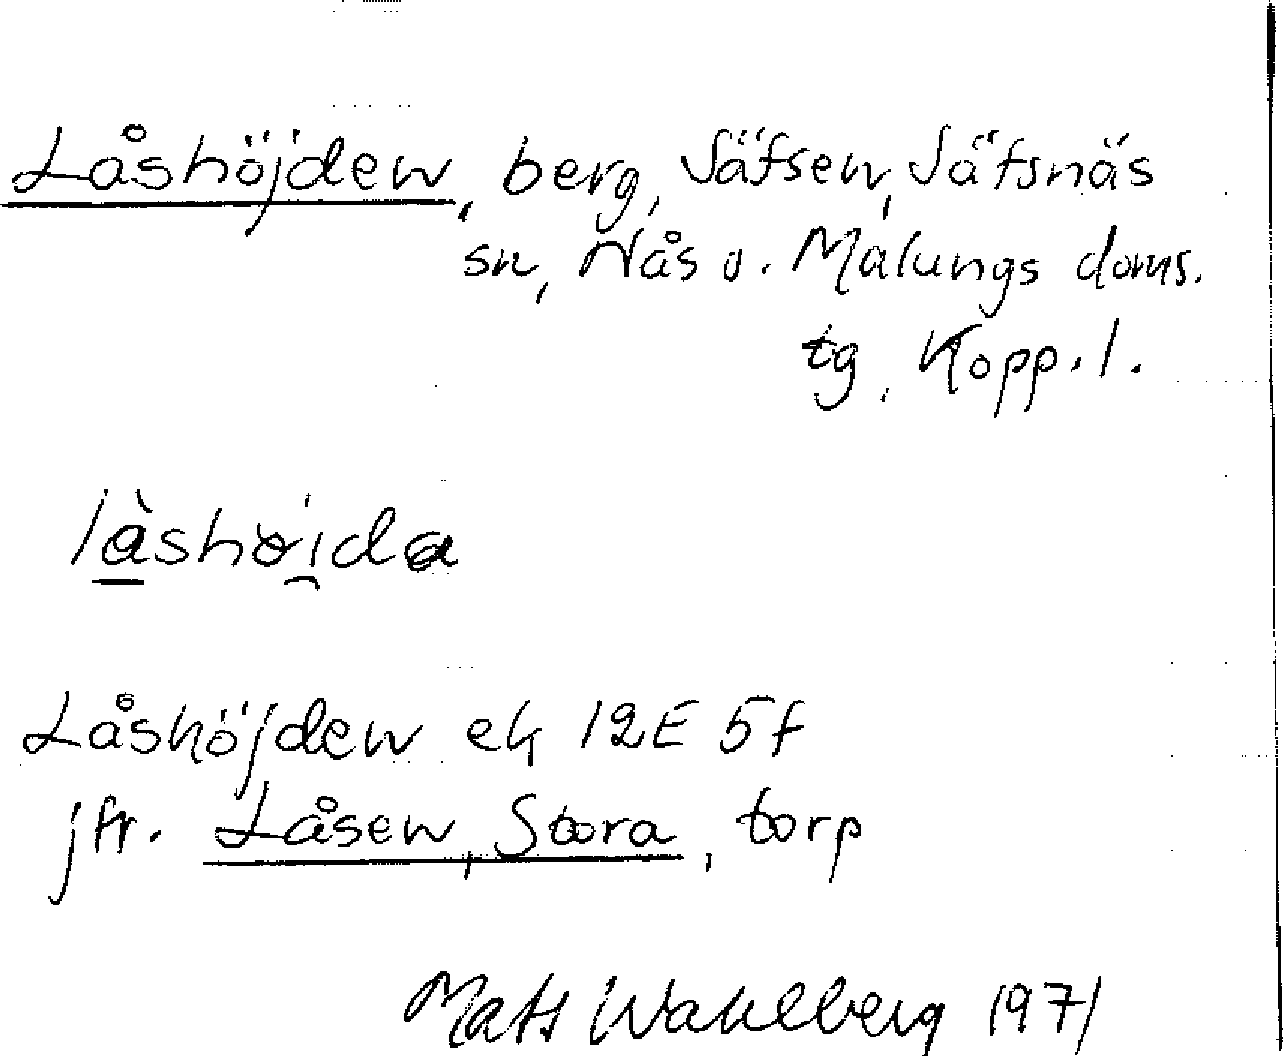 Låshöjden, berg, Säfsen, Säfsnäs
sn, Nås o. Malungs doms.
tg, Kopp. l.
làshöi̯da
Låshöjden ek 12E 5f
jfr. Låsen, Stora, torp
Mats Wahlberg 1971